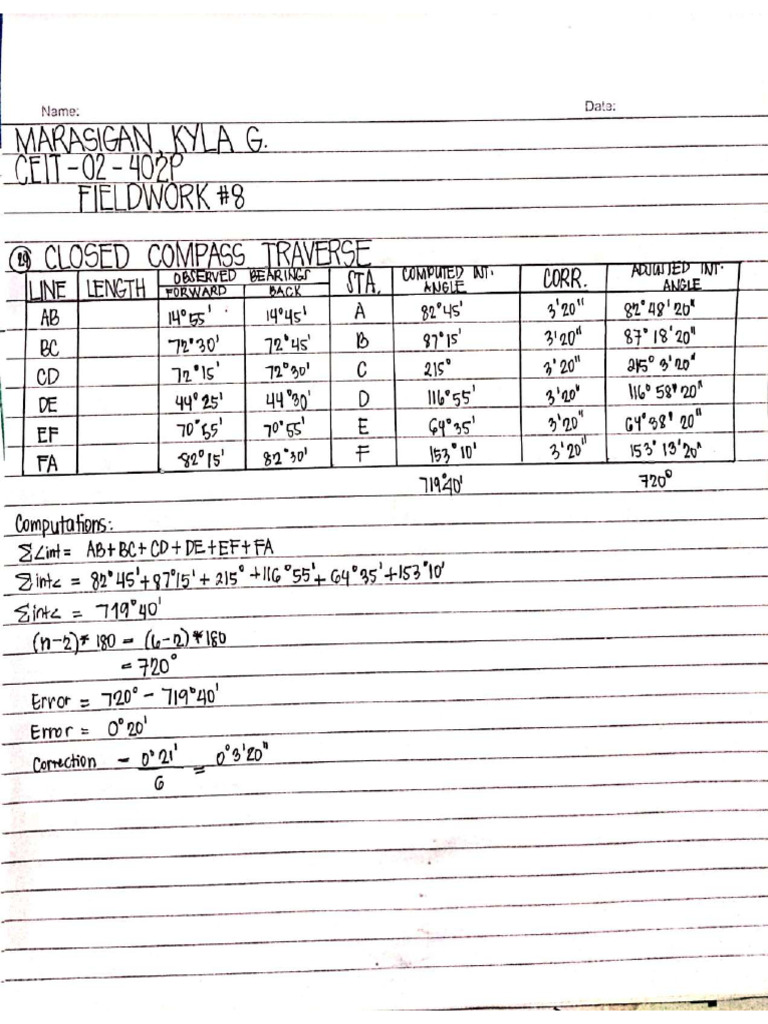 Name: Date:
MARASIGAN, KYLA G.
CEIT-02-402P
FIELDWORK #8
29 CLOSED COMPASS TRAVERSE
LINE LENGTH OBSERVED BEARINGS FORWARD BACK STA. COMPUTED INT. ANGLE CORR. ADJUSTED INT. ANGLE
AB 14°55' 14°45' A 82°45' 3'20" 82°48'20"
BC 72°30' 72°45' B 87°15' 3'20" 87°18'20"
CD 72°15' 72°30' C 215° 3'20" 215°3'20"
DE 44°25' 44°30' D 116°55' 3'20" 116°58'20"
EF 70°55' 70°55' E 64°35' 3'20" 64°38'20"
FA 82°15' 82°30' F 153°10' 3'20" 153°13'20"
719°40' 720°
Computations:
Σ∠int = AB+BC+CD+DE+EF+FA
Σint∠ = 82°45'+87°15'+215°+116°55'+64°35'+153°10'
Σint∠ = 719°40'
(n-2)*180 = (6-2)*180
= 720°
Error = 720° - 719°40'
Error = 0°20'
Correction - 0°21' / 6 = 0°3'20"